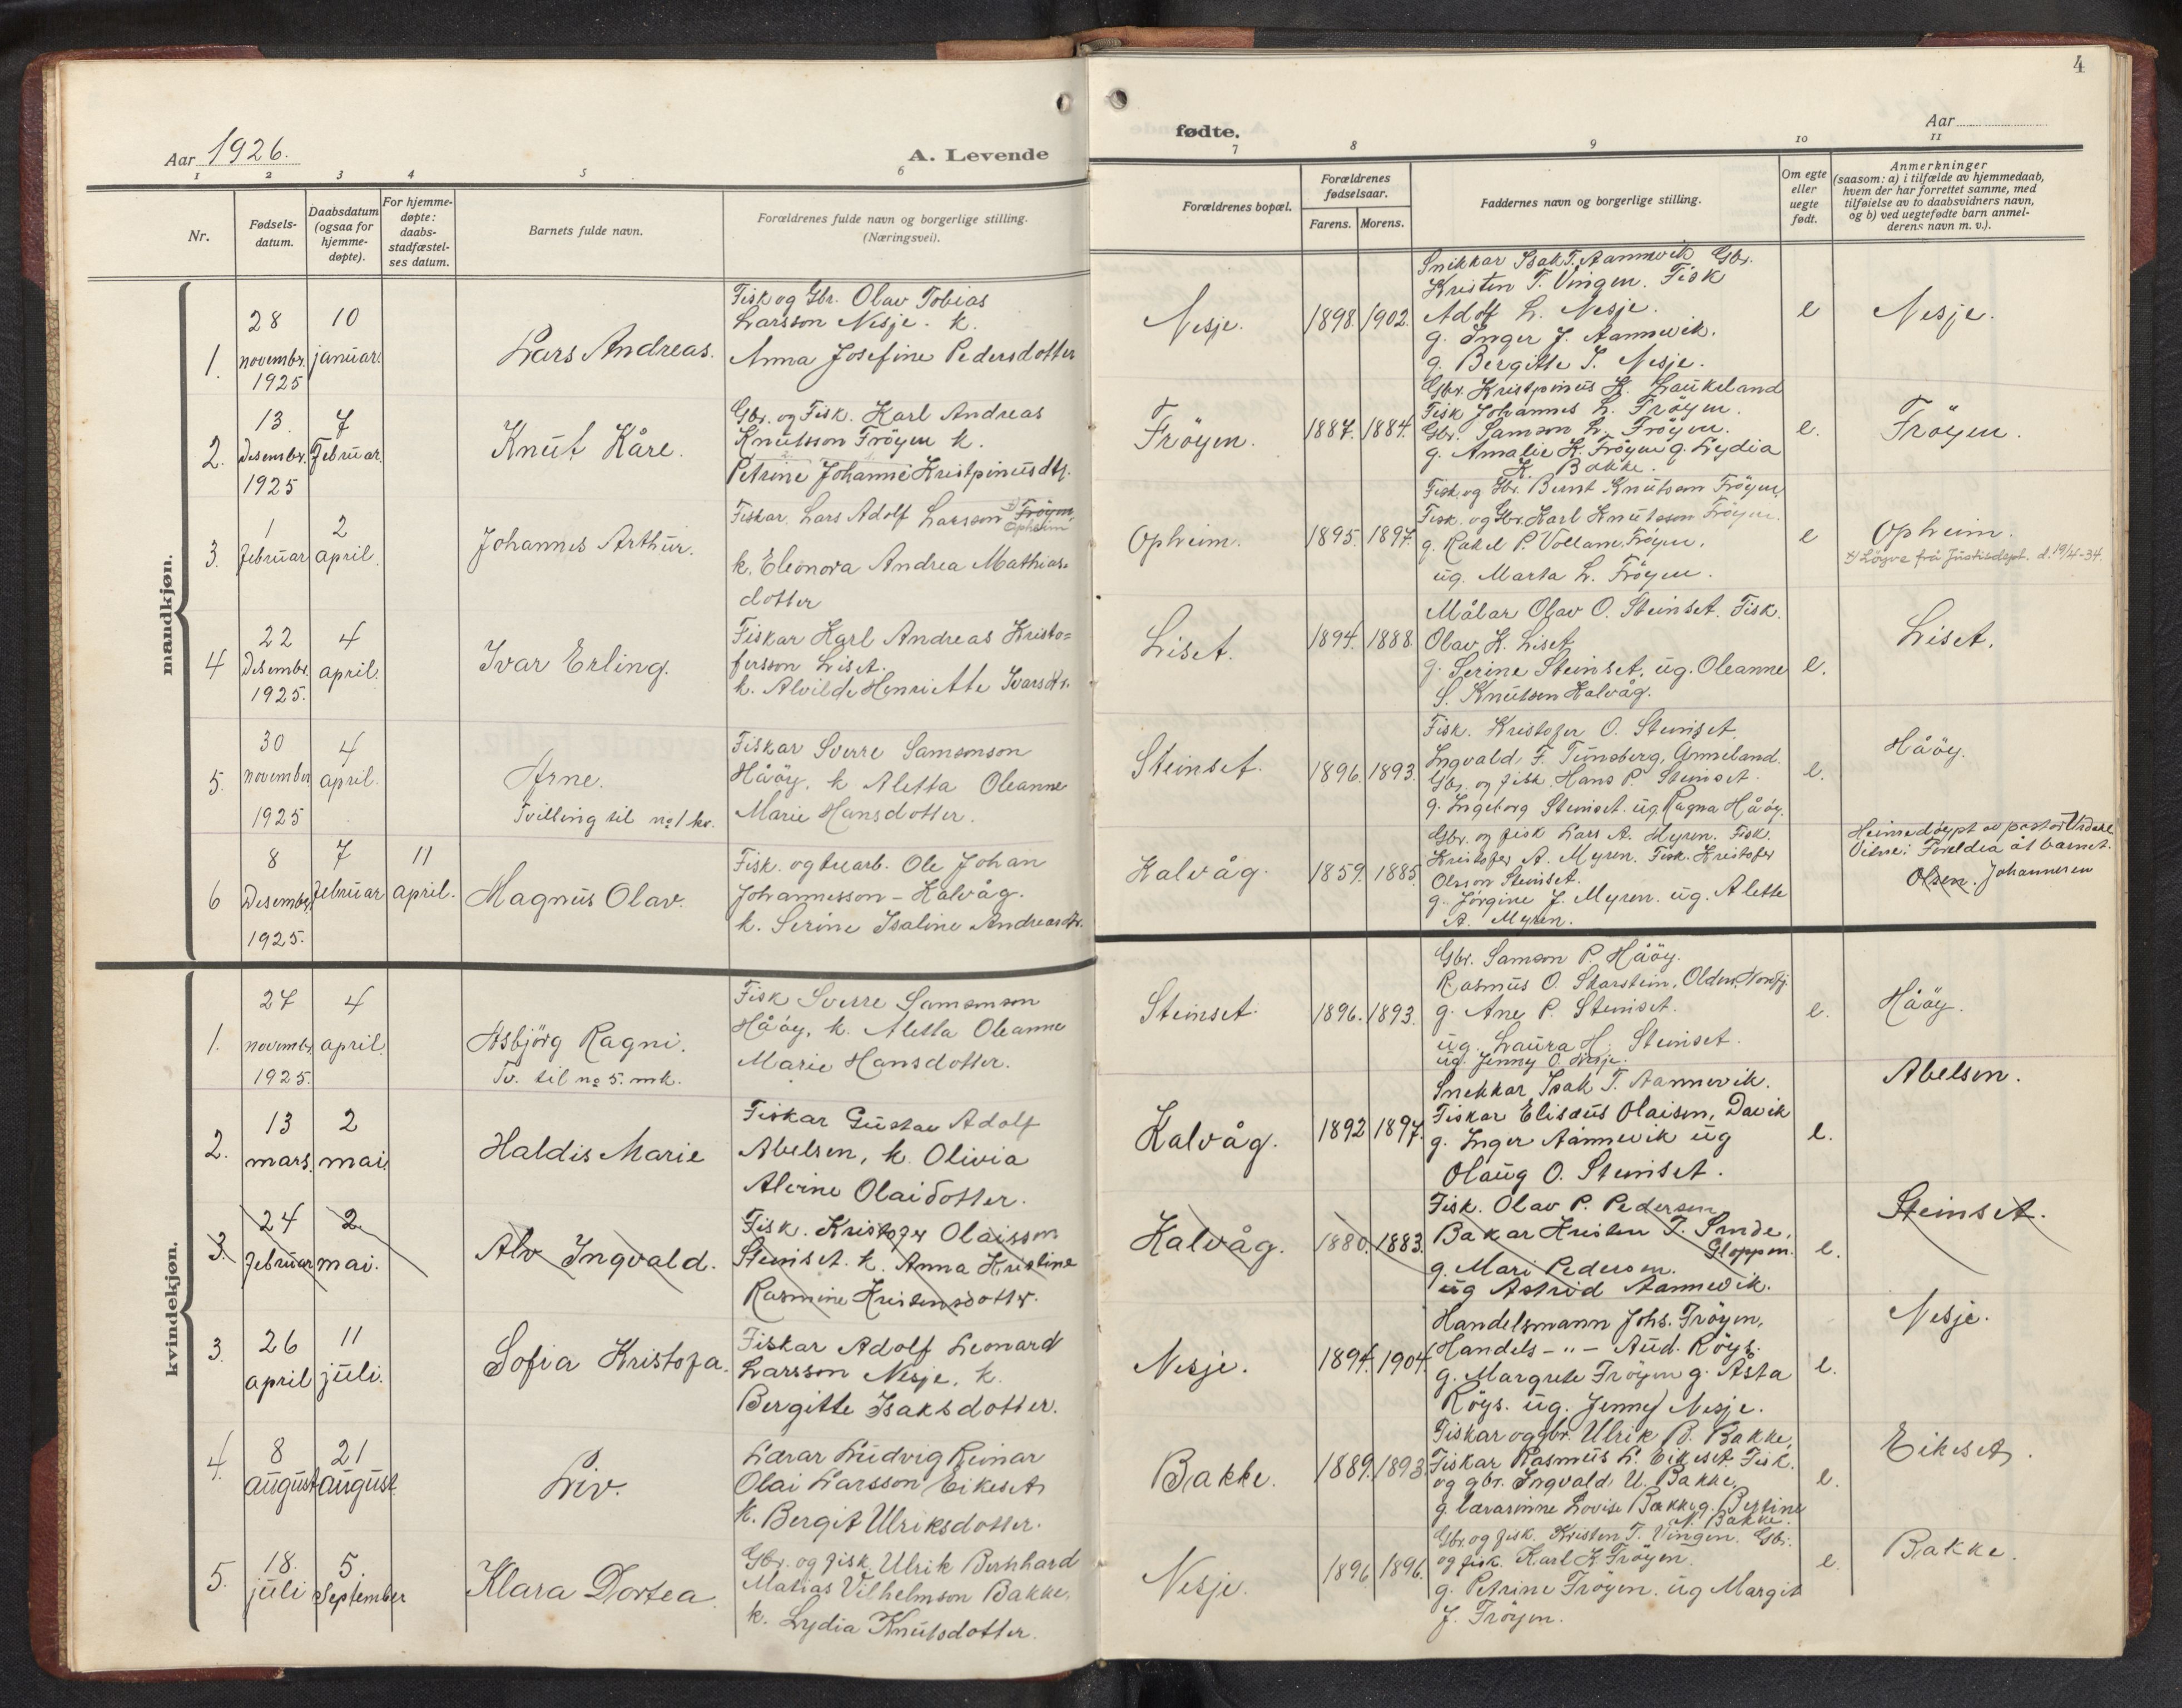 4
Aar 1926.
A. Levende
fødte.
Aar
1 2 3 4 5 6 7 8 9 10 11
Nr.
Fødsels-
datum.
Daabsdatum
(ogsaa for
hjemme-
døpte).
For hjemme-
døpte:
daabs-
stadfæstel-
ses datum.
Barnets fulde navn.
Forældrenes fulde navn og borgerlige stilling.
(Næringsvei).
Forældrenes bopæl.
Forældrenes
fødselsaar.
Farens. Morens.
Faddernes navn og borgerlige stilling.
Om egte
eller
uegte
født.
Anmerkninger
(saasom: a) i tilfælde av hjemmedaab,
hvem der har forrettet samme, med
tilføielse av to daabsvidners navn,
og b) ved uegtefødte barn anmel-
derens navn m. v.).
mandkjøn.
1.
28
novembr.
1925
10
januar.
Lars Andreas.
Fisk og Gbr. Olav Tobias
Larsson Nesje. k.
Anna Josefine Pedersdotter
Nesje.
1898. 1902.
Snikkar Isak T. Aannevik Gbr.
Kristen T. Vingen. Fisk
Adolf L. Nesje.
g. Inger J. Aannevik.
g. Bergitte I. Nesje.
e
Nesje.
2.
13.
Desembr.
1925
7
Februar.
Knut Kåre.
Gbr. og Fisk. Karl Andreas
Knutsson Fröyen k.
Petrine Johanne Kristpinusdtr.
Fröyen.
1887. 1884.
Gbr. Kristpinus K. Laukeland
Fisk Johannes L. Fröyen.
Gbr. Samson L. Fröyen.
g. Amalie K. Fröyen g. Lydia
K. Bakke.
e.
Fröyen.
3.
1
februar
2
april.
Johannes Arthur.
Fiskar. Lars Adolf Larsson Fröyen
Opheim
k. Eleonora Andrea Mathias-
dotter
Opheim.
1895. 1897.
Fisk. og Gbr. Bernt Knutson Fröyen,
Fisk. og Gbr. Karl Knutsson Fröyen.
g. Rakel P. Vollam. Fröyen.
ug. Marta L. Fröyen.
e
Opheim.
x) Löyve frå Justisdept. d. 19/4-34.
4
22
Desembr.
1925.
4
april.
Ivar Erling.
Fiskar Karl Andreas Kristo=
fersson Liset.
k. Alvilde Henriette Ivarsdtr.
Liset.
1894. 1888
Målar Olav O. Steinset. Fisk.
Olav K. Liset
g. Serine Steinset, ug. Oleanne
S. Knutsen Kalvåg.
e.
Liset.
5.
30
november
1925
4
april.
Arne.
Tvilling til no 1 kv.
Fiskar Sverre Samsonson
Hååy, k Aletta Oleanne
Marie Hansdotter.
Steinset.
1896. 1893.
Fisk. Kristofer O. Steinset.
Ingvald F. Tunsberg, Anneland.
Gbr. og fisk. Hans P. Steinset.
g. Ingeborg Steinset. ug. Ragna Hååy.
e.
Hååy.
6
8
Desembr.
1925.
7
februar
11
april.
Magnus Olav.
Fisk. og Johan
Johannesson - Kalvåg.
k. Serine Isaline Andreasdtr.
Kalvåg.
1859. 1885.
Gbr. og fisk Lars A. Myren. Fisk.
Kristofer A. Myren. Fisk. Kristofer
Olsson Steinset.
g. Jørgine J. Myren. ug. Alette
A. Myren.
Heimedöypt av pastor
Vitne: Foreldra åt barnet.
Olsen. Johannesen
kvindekjøn.
1.
27
novembr.
1925.
4
april.
Asbjörg Ragni.
Tv. til no 5. mk.
Fisk Sverre Samsonson
Hååy, k. Aletta Oleanne
Marie Hansdotter.
Steinset.
1896. 1893.
Gbr. Samson P. Hååy.
Rasmus O. Skarstein, Olden, Nordfj.
g. Ane P. Steinset.
ug. Laura H. Steinset.
ug. Jenny O. Nesje.
e.
Hååy.
2.
13
mars.
2
mai.
Haldis Marie
Fiskar Gustav Adolf
Abelsen, k. Olivia
Alvine Olaidotter.
Kalvåg.
1892 1897.
Snekkar, Isak T. Aannevik.
Fiskar Elisæus Olaisen, Davik
g. Inger Aannevik ug
Olaug O. Steinset.
e.
Abelsen.
3.
24
februar
2.
mai.
Alv Ingvald.
Fisk. Kristofer Olaisson
Steinset. k. Anna Kristine
Rasmine Kristensdotter.
Kalvåg.
1880. 1883.
Fisk. Olav P. Pedersen
Bakar Kristen T. Sande,
Gloppen.
g. Mari Pedersen.
ug Astrid Aannevik.
e.
Steinset.
3.
26
april
11
juli.
Sofia Kristofa.
Fiskar Adolf Leonard
Larsson Nesje, k.
Bergitte Isaksdotter.
Nesje.
1894. 1904.
Handelsmann Johs. Fröyen,
Handels - " - Aud. Röys.
g. Margrete Fröyen g. Åsta
Röys. ug. Jenny Nesje.
e.
Nesje.
4.
8
august
21
august.
Liv.
Lærar Ludvig Reinar
Olai Larsson Eikeset,
k. Bergit Ulriksdotter.
Bakke.
1889. 1893.
Fiskar og gbr. Ulrik B. Bakke,
Fiskar Rasmus L. Eikeset. Fisk.
og gbr. Ingvald U. Bakke,
g. lærarinne Lovise Bakke, g. Bertine
N. Bakke.
e.
Eikeset.
5.
18.
juli
5.
September
Klara Dortea.
Gbr. og fisk. Ulrik Bernhard
Matias Vilhelmson Bakke,
k. Lydia Knutsdotter.
Nesje.
1896 1896.
Gbr. og fisk. Kristen T. Vingen. Gbr.
og fisk. Karl K. Fröyen.
g. Petrine Fröyen. ug Margit
J. Fröyen.
e.
Bakke.